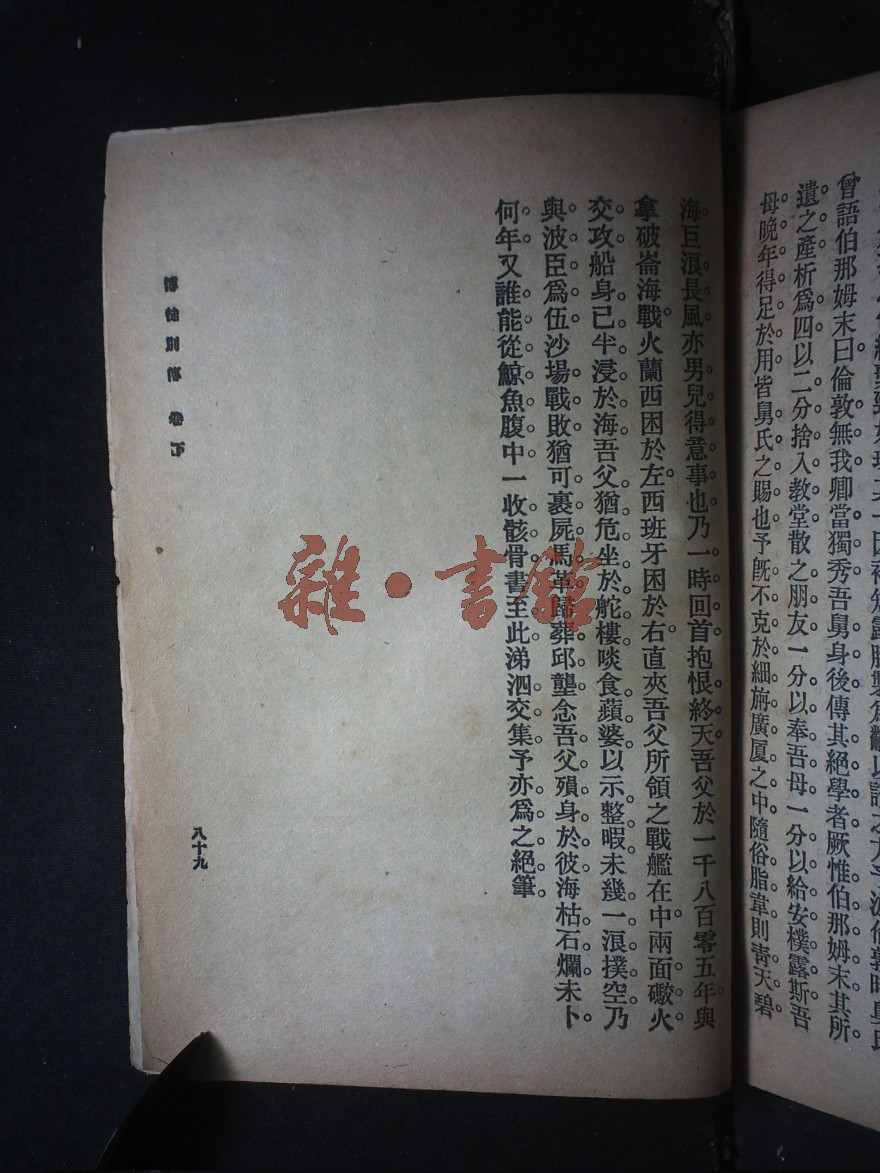 曾語伯那姆末曰倫敦無我卿當獨秀吾舅身後傳其絕學者厥惟伯那姆末其所
遺之產析爲四以二分捨入教堂散之朋友一分以奉吾母一分以給安樸露斯吾
母晚年得足於用皆舅氏之賜也予旣不克於細旃廣厦之中隨俗脂韋則靑天碧
海巨浪長風亦男兒得意事也乃一時回首抱恨終天吾父於一千八百零五年與
拿破崙海戰火蘭西困於左西班牙困於右直夾吾父所領之戰艦在中兩面礮火
交攻船身已半浸於海吾父猶危坐於舵樓啖食蘋婆以示整暇未幾一浪撲空乃
與波臣爲伍沙場戰敗猶可裹屍馬革歸葬邱壟念吾父殞身於彼海枯石爛未卜
何年又誰能從鯨魚腹中一收骸骨書至此涕泗交集予亦爲之絕筆
別傳 卷下
八十九
雜·書館